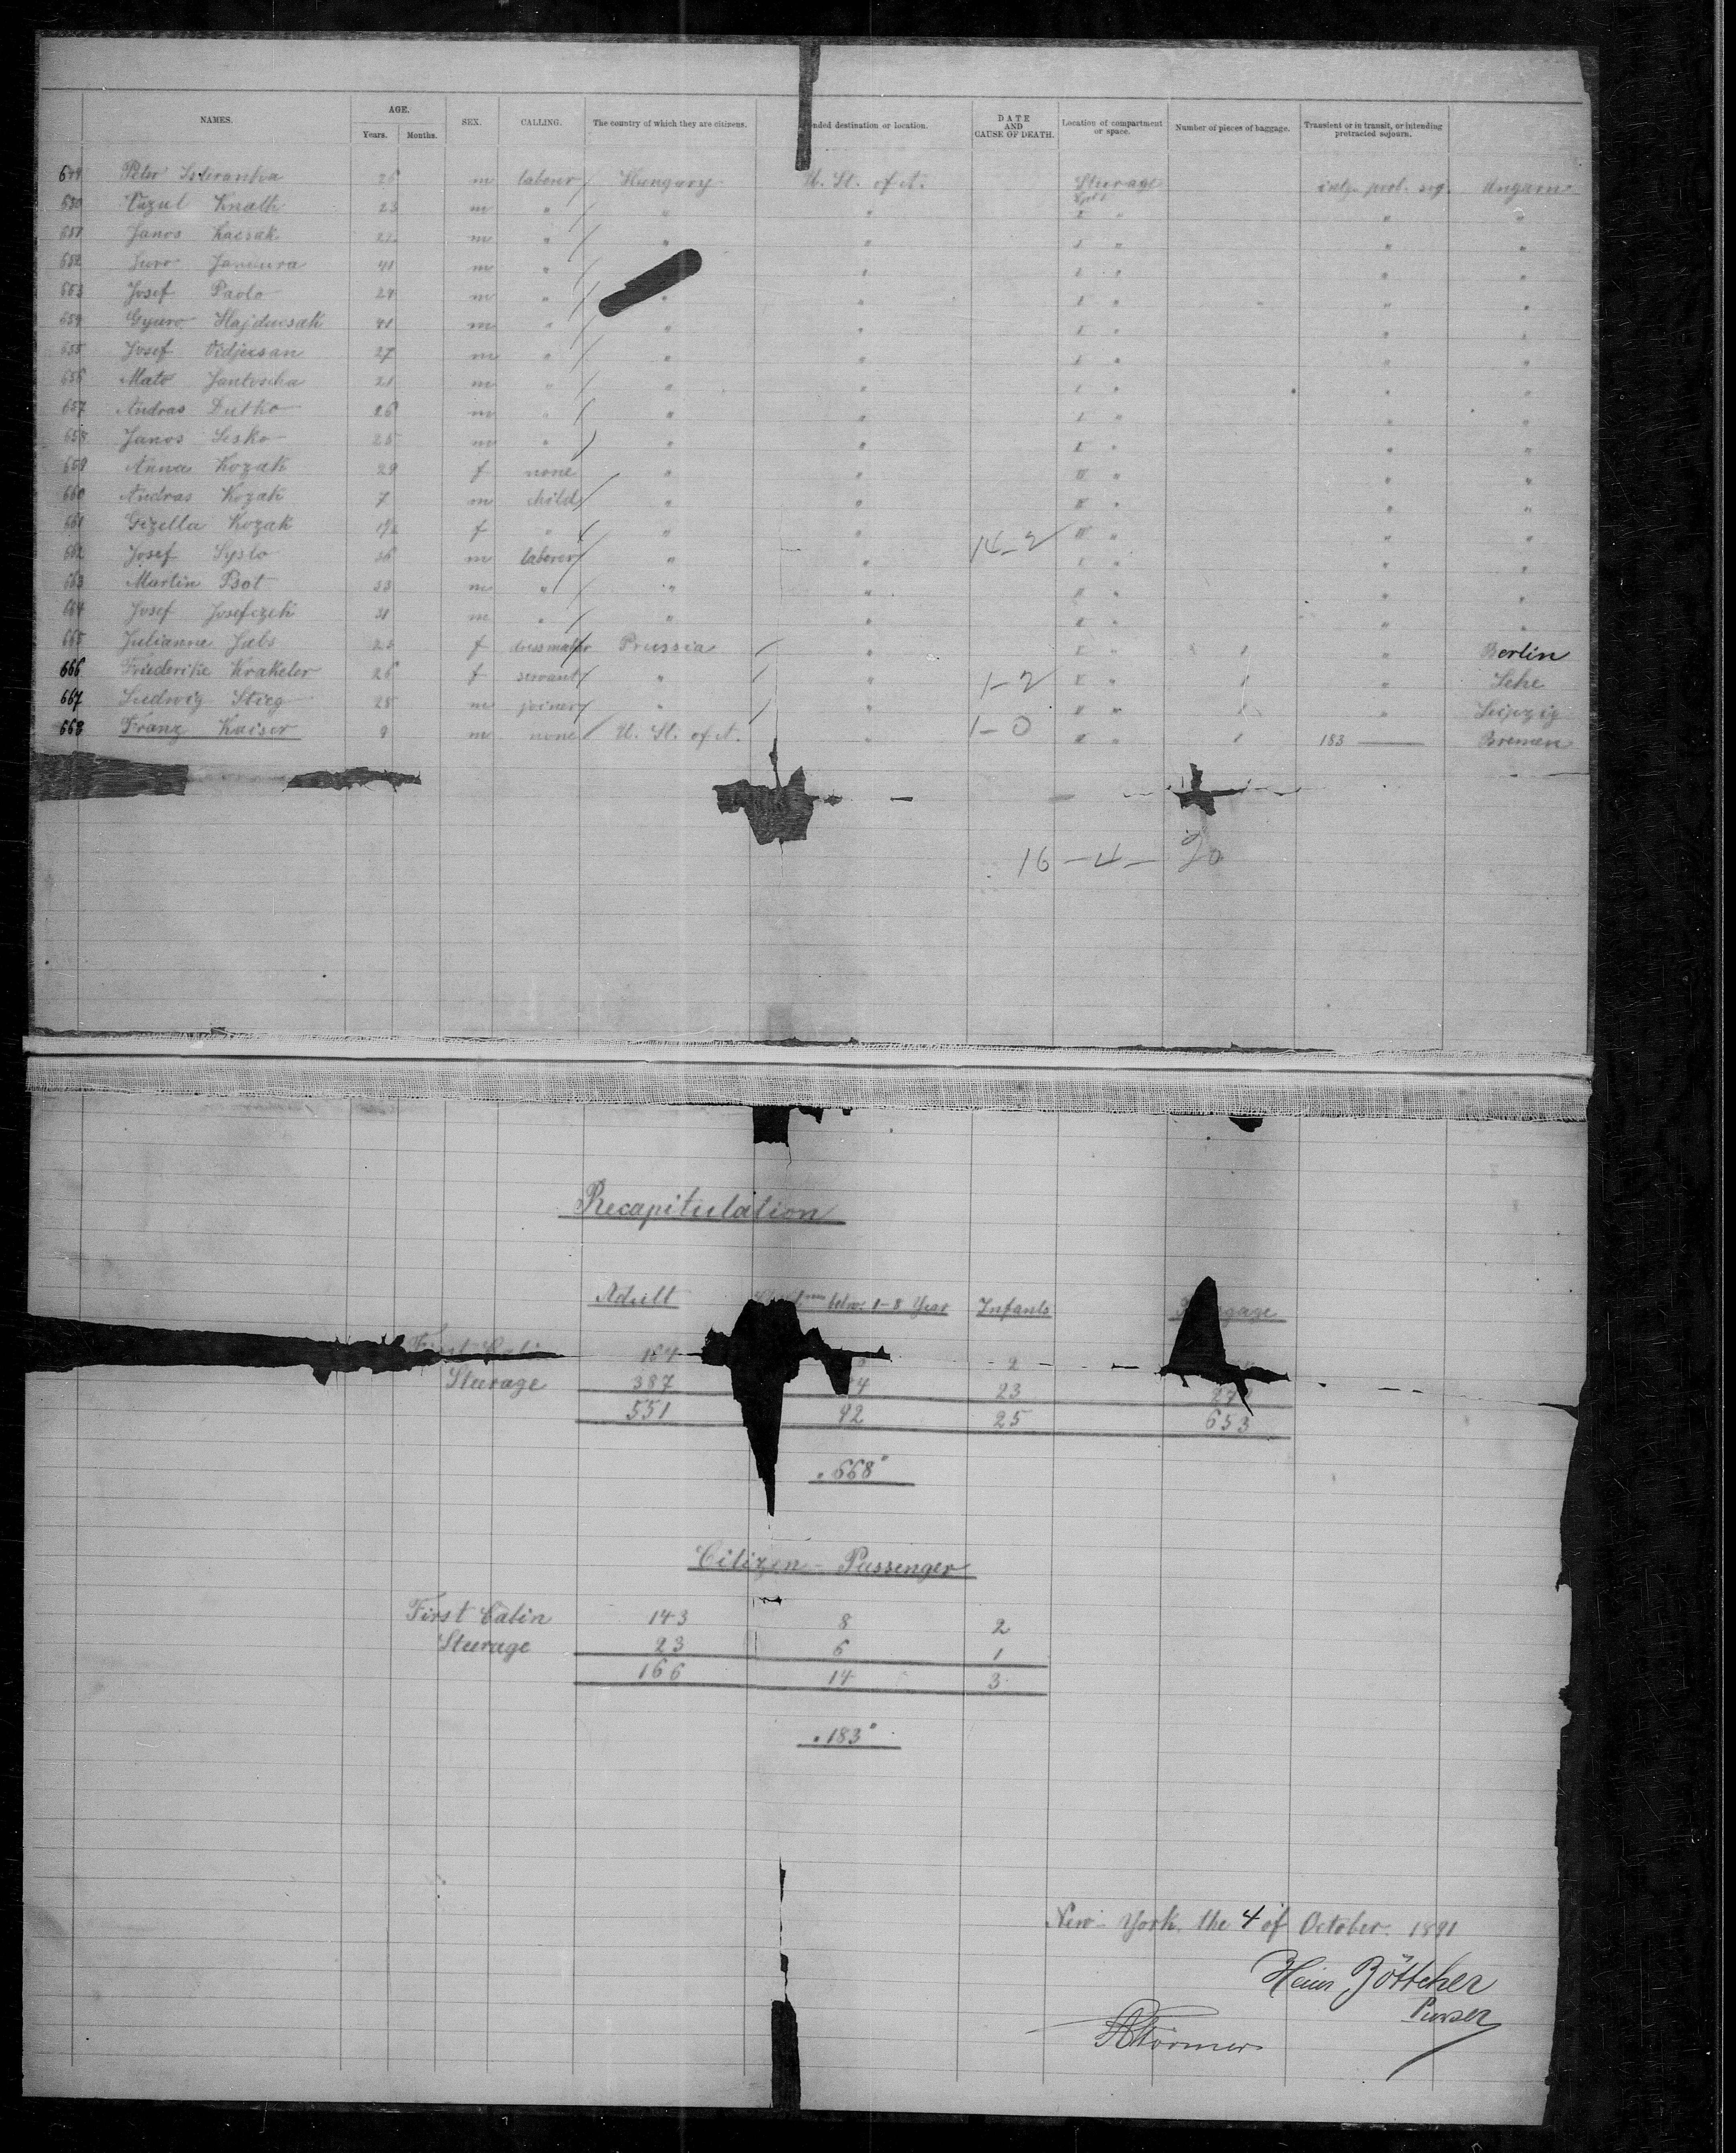 NAMES. AGE. Years. Months. SEX. CALLING. The country of which they are citizens. ended destination or location. DATE AND CAUSE OF DEATH. Location of compartment or space. Number of pieces of baggage. Transient or in transit, or intending protracted sojourn.
649 Peter 26 m laborer Hungary U. St. of A. Steerage Ungarn
650 Knath 23 m " " " " " "
651 Janos Kacsak 22 m " " " " " "
652 Juro Jancura 41 m " " " " "
653 Josef Pavlo 29 m " " " " " "
654 Gyuro Hajducsak 41 m " " " " " "
655 Josef Vidjescan 27 m " " " " " "
656 Mato Jantoscha 21 m " " " " " "
657 Andras Dutko 26 m " " " " " "
658 Janos Sesko 25 m " " " " " "
659 Anna Kozak 29 f none " " " " "
660 Andras Kozak 7 m child " " " " "
661 Gizella Kozak 1/2 f " " " 14-2 " " "
662 Josef Syslo 36 m laborer " " " " "
663 Martin Psot 33 m " " " " " "
664 Josef Josefczek 31 m " " " " " "
665 Julianne Jabs 25 f dressmaker Prussia " " 1 " Berlin
666 Friederike Krakeler 26 f servant " " 1-2 " 1 " Lehe
667 Ludwig Stieg 28 m joiner " " " " Leipzig
668 Franz Kaiser 9 m none U. St. of A. " 1-0 " 1 183 Bremen
16-4-20
Recapitulation
Adult betw. 1-8 Year Infants
164 2
Steerage 387 23
551 92 25 653
"668"
Citizen - Passenger
First Cabin 143 8 2
Steerage 23 6 1
166 14 3
"183"
New-York, the 4 of October. 1891
Heinr Böttcher
Purser